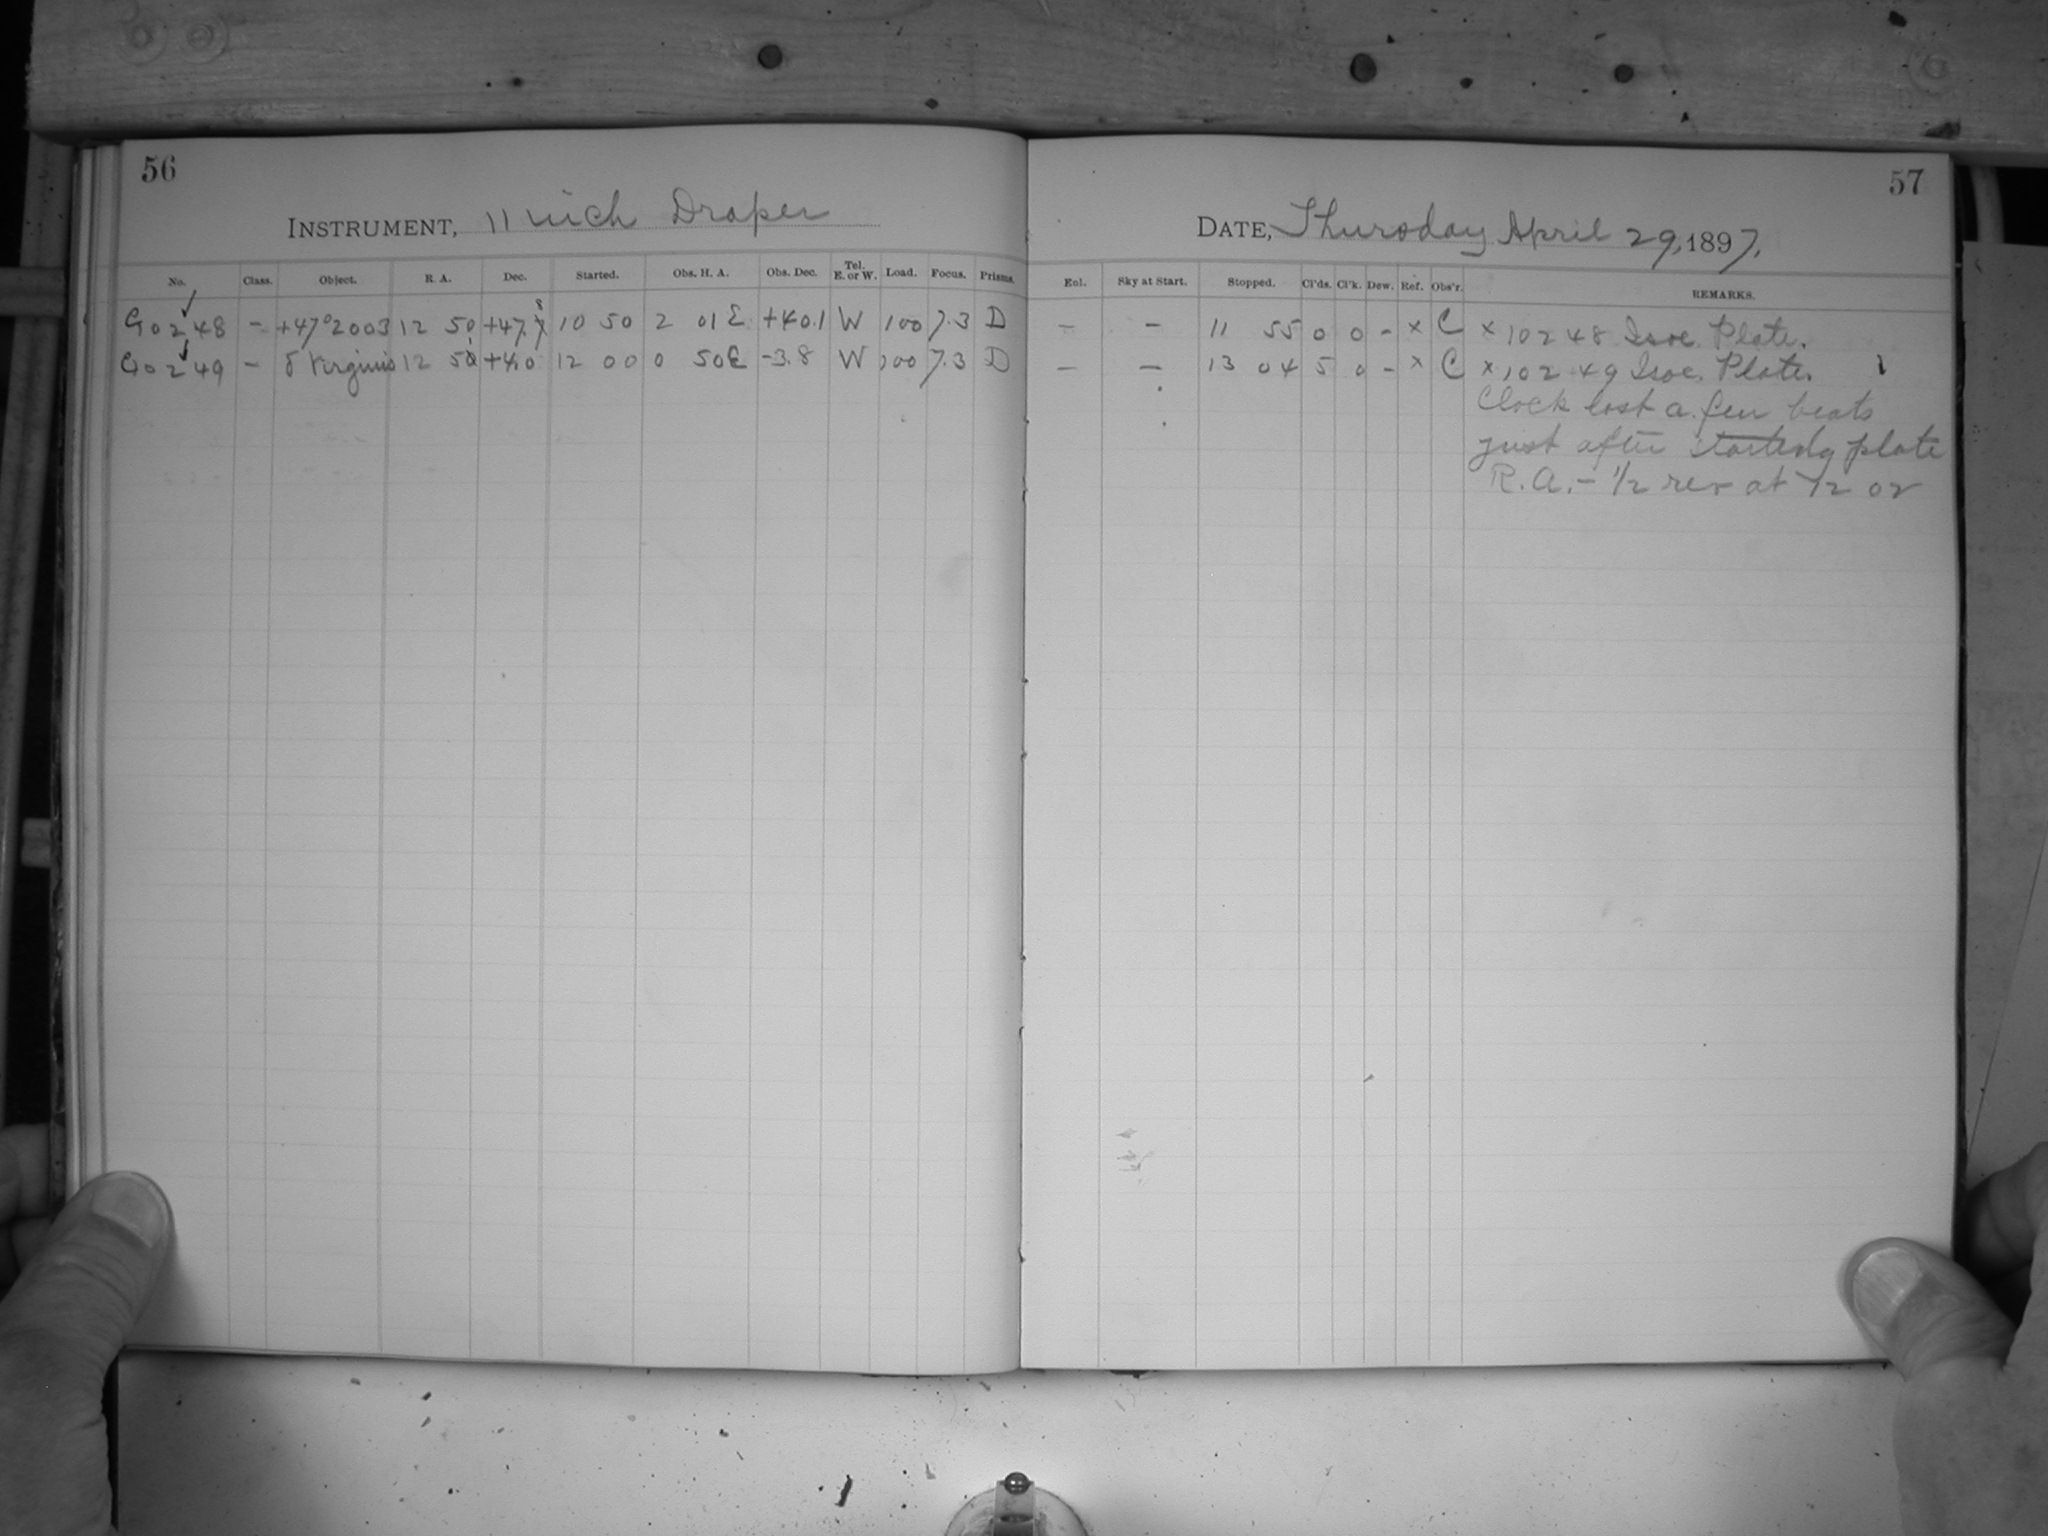 56
INSTRUMENT, 11 inch Draper
No. Class. Object. R. A. Dec. Started. Obs. H. A. Obs. Dec. Tel. E. or W. Load. Focus. Prisms.
G0248 – +47°2003 12 50 +47.8 10 50 2 01E +40.1 W 100 7.3 D
G0249 – δ Virginis 12 50 +4.0 12 00 0 50E -3.8 W 100 7.3 D
57
DATE, Thursday April 29, 1897.
Sky at Start. Stopped. Cl'ds. Cl'k. Dew. Ref. Obs'r. REMARKS.
– – 11 55 0 0 – x C x 10248 Isoc. Plate.
– – 13 04 5 0 – x C x 10249 Isoc. Plate.
Clock lost a few beats
just after starting plate
R.A. – 1/2 rev at 12 02